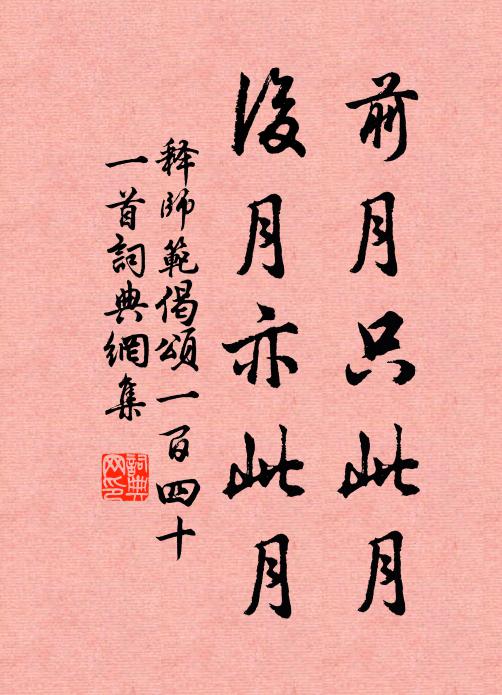 前月只此月
後月亦此月
释師範偈頌一百四十
一首詞典網集
詞典网印